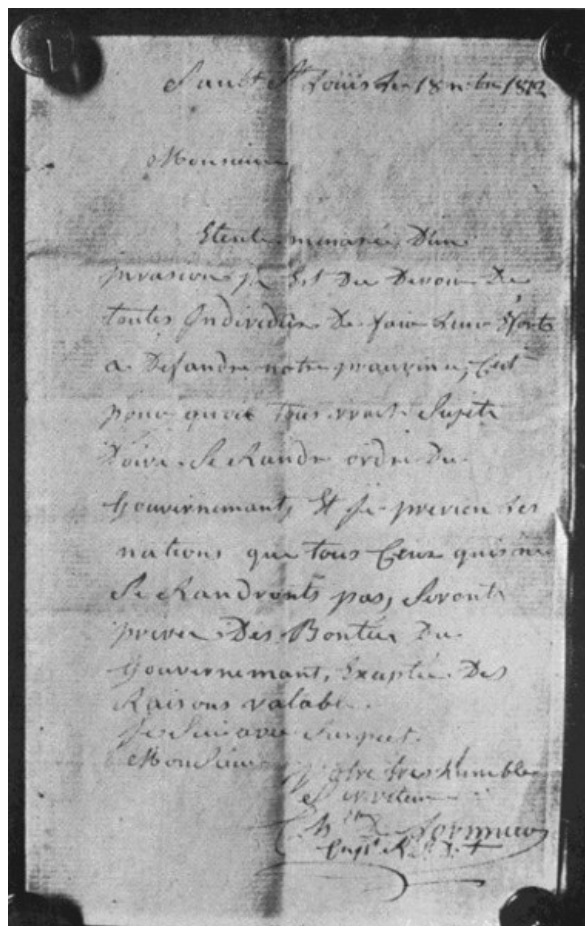 Sault St Louis le 18 n.bre 1812
Monsieur
Etente menasée D'un
invasion il Est Du Devoir De
toutes Individus De faire Leurs Éforts
a Defandre notre prauvince, C'est
pour quoie tous vrais Sujets
Doive Se Randre ordre Du
Gouvernemant, Et Je previen Les
nations que tous Ceux quis ne
Se Randronts pas, Seronts
priver Des Bontée Du
Gouvernemant, Exaptée Des
Raisons valable.
Je Suis avec Respect.
Monsieur Votre tres Humble
Serviteur
Lorimier
Capt